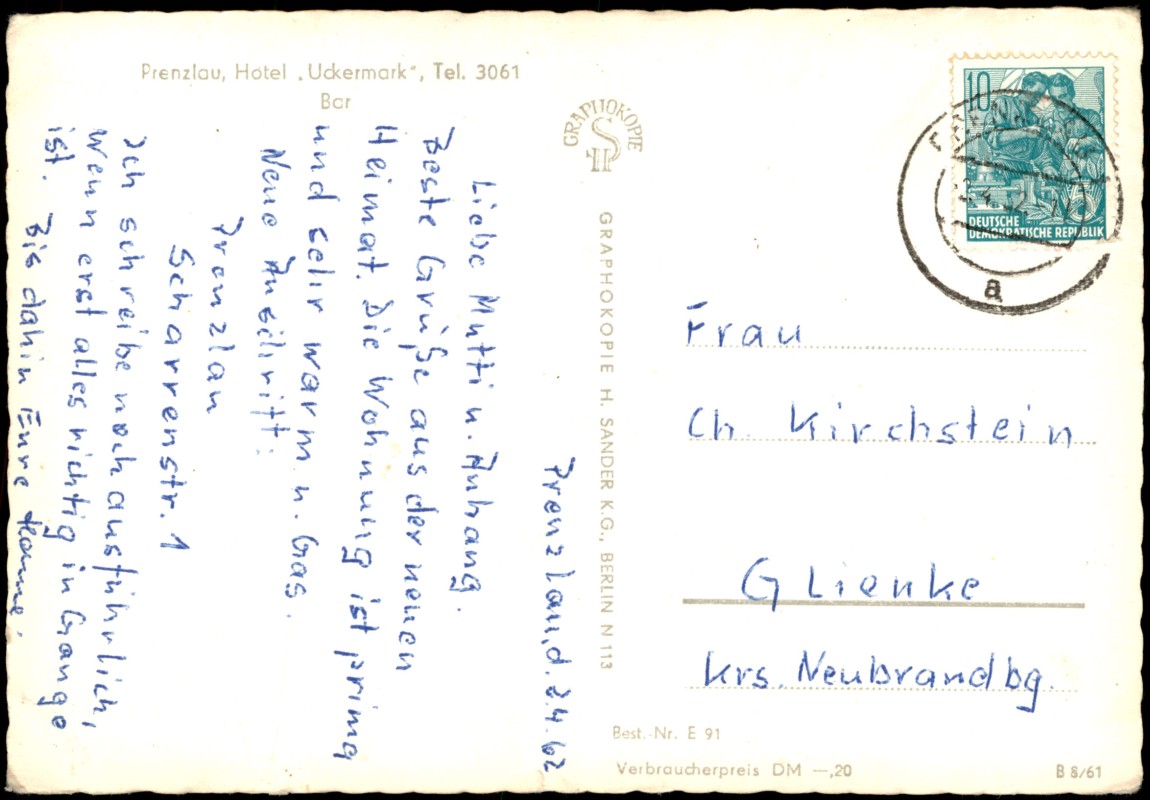 Prenzlau, Hotel „Uckermark“, Tel. 3061
Bar
Prenzlau, d. 2.4.62
Liebe Mutti u. Anhang.
Beste Grüße aus der neuen
Heimat. Die Wohnung ist prima
und sehr warm u. Gas.
Neue Anschrift:
Prenzlau
Scharrenstr. 1
Ich schreibe noch ausführlich,
wenn erst alles richtig in Gange
ist.
Bis dahin Eure
GRAPHOKOPIE
H S
GRAPHOKOPIE H. SANDER K.G., BERLIN N 113
10
DEUTSCHE
DEMOKRATISCHE REPUBLIK
a
Frau
Ch. Kirchstein
Glienke
Krs. Neubrandbg.
Best.-Nr. E 91
Verbraucherpreis DM —,20
B 8/61